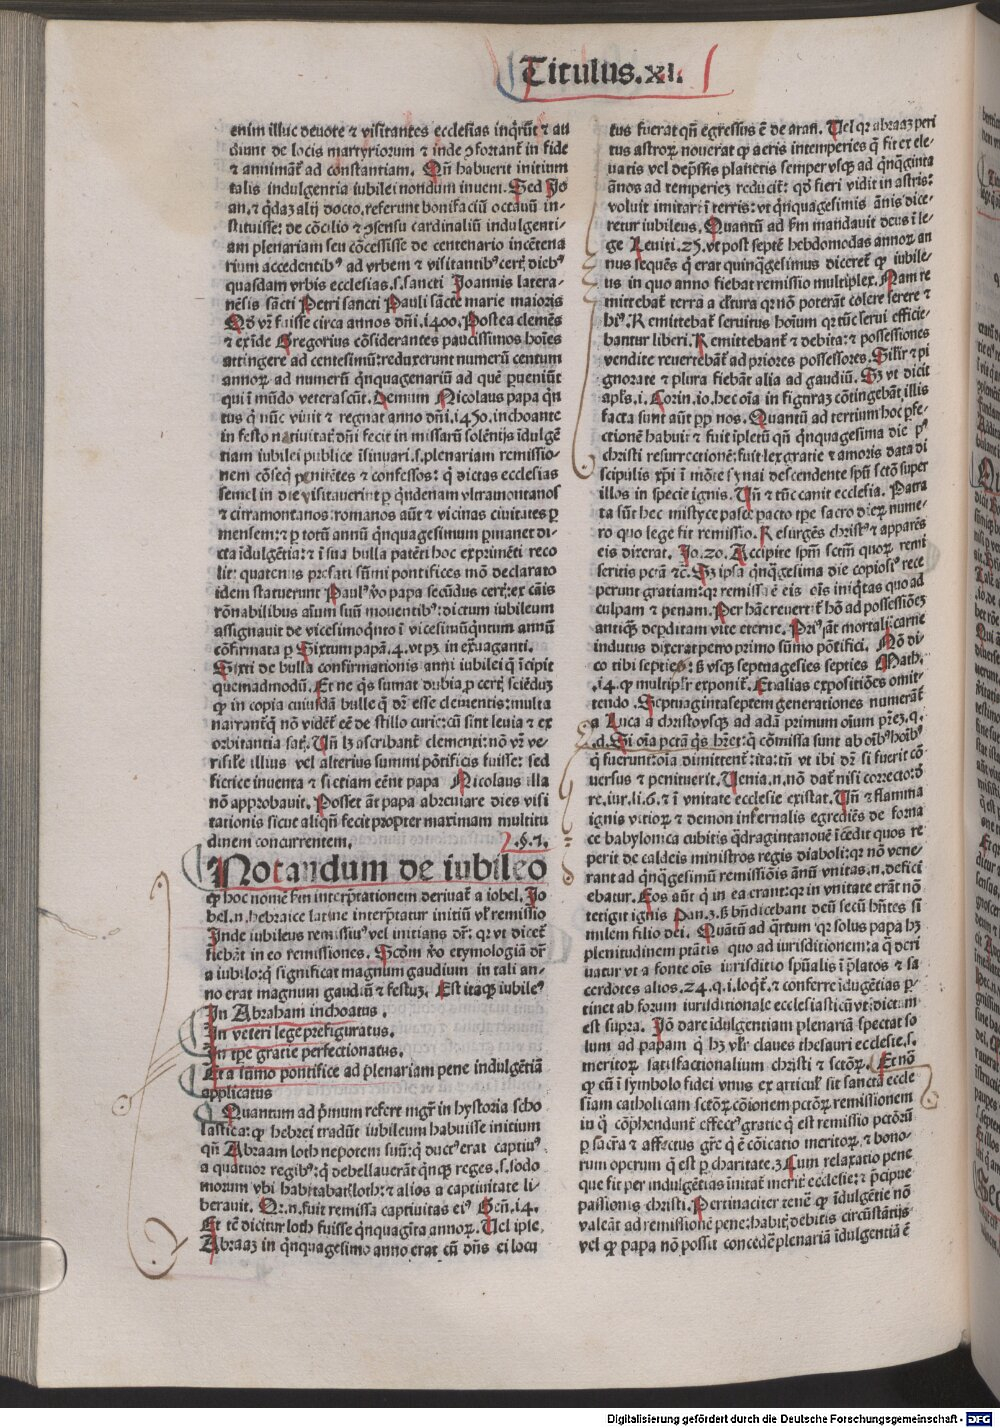 Titulus.xi.
enim illuc deuote ⁊ visitantes ecclesias inqͥrūt ⁊ au
diunt de locis martyriorum ⁊ inde ꝯfortant̄ in fide
⁊ animant̄ ad constantiam. Qn̄ habuerit initium
talis indulgentia iubilei nondum inueni. Sed Jo
an. ⁊ qͥdaʒ alij docto. referunt bonifaciū octauū in⸗
stituisse: de cōcilio ⁊ ꝯsensu cardinaliū indulgenti⸗
am plenariam seu cōcessisse de centenario incētena
rium accedentibꝰ ad vrbem ⁊ visitantibꝰ certꝭ diebꝰ
quasdam vrbis ecclesias .s. sancti Joannis latera⸗
nēsis sācti Petri sancti Pauli sācte marie maioris
Qd̓ vr̄ fuisse circa annos dn̄i .1400. Postea clemēs
⁊ exīde Gregorius cōsiderantes paucissimos hoīes
attingere ad centesimū: reduxerunt numerū centum
annoꝝ ad numerū qͥnquagenariū ad quē ꝑueniūt
qui ī mūdo veterascūt. Demum Nicolaus papa qͥn
tus qͥ nūc viuit ⁊ regnat anno dn̄i .1450. inchoante
in festo natiuitatꝭ dn̄i fecit in missarū solēnijs īdulgē
tiam iubilei publice īsinuari .s. plenariam remissio⸗
nem cōseqͥ penitētes ⁊ confessos: qͥ dictas ecclesias
semel in die visitauerint ꝑ qͥndenam vltramontanos
⁊ citramontanos: romanos aūt ⁊ vicinas ciuitates ꝑ
mensem: ⁊ ꝑ totū annū qͥnquagesimum ꝑmanet di⸗
cta īdulgētia: ⁊ ī sua bulla patēti hoc exprimēti reco
lit: quatenus prefati sūmi pontifices mō declarato
idem statuerunt Paulꝰ v̓o papa secūdus certꝭ ex cāis
rōnabilibus aīum suū mouentibꝰ: dictum iubileum
assignauit de vicesimoqͥnto ī vicesimūqͥntum annū
cōfirmata ꝑ Sixtum papā .4. vt pꝫ in exuaganti.
Sixti de bulla confirmationis anni iubilei qͥ īcipit
quemadmodū. Et ne qͥs sumat dubia ꝓ certꝭ sciēduꝫ
ꝙ in copia cuiusdā bulle q̄ dr̄ esse clementis: multa
narrant̄ q̄ nō vidēt̄ eē de stillo curie: cū sint leuia ⁊ ex
orbitantia satꝭ. Vn̄ lꝫ ascribant̄ clementi: nō vr̄ ve⸗
risil̓e illius vel alterius summi pōtificis fuisse: sed
fictice inuenta ⁊ si etiam eēnt papa Nicolaus illa
nō approbauit. Posset āt papa abreuiare dies visi
tationis sicut aliqn̄ fecit propter maximam multitu
dinem concurrentem. .§.1.
Notandum de iubileo
ꝙ hoc nomē fm̄ interp̄tationem deriuat̄ a iobel. Jo
bel .n. hebraice latine interp̄tatur initiū vl̓ remissio
Inde iubileus remissiuꝰ vel initians dr̄: qr vt dicet̄
fiebāt in eo remissiones. Scd̓m v̓o etymologiā dr̄
a iubilo: qͥ significat magnum gaudium in tali an⸗
no erat magnum gaudiū ⁊ festuꝫ. Est itaqꝫ iubileꝰ
In Abraham inchoatus.
In veteri lege prefiguratus.
In tp̄e gratie perfectionatus.
Et a sūmo pontifice ad plenariam pene indulgētiā
applicatus
Quantum ad pͥmum refert mgr̄ in hystoria scho
lastica: ꝙ hebrei tradūt iubileum habuisse initium
qn̄ Abraam loth nepotem suū: qͥ ductꝰ erat captiuꝰ
a quatuor regibꝰ: qͥ debellauerāt qͥnqꝫ reges .s. sodo
morum vbi habitabat loth: ⁊ alios a captiuitate li⸗
berauit. Qr .n. fuit remissa captiuitas eiꝰ Gen̄. 14.
Et tē dicitur loth fuisse qͥnquagīta annoꝝ. Uel ipse.
Abraaʒ in qͥnquagesimo anno erat cū dn̄s ei locu
tus fuerat qn̄ egressus ē de aran. Uel qr abraaʒ peri
tus astroꝝ nouerat ꝙ aeris intemperies q̄ fit ex ele⸗
uatis vel dep̄ssis planetis semper vsqꝫ ad qͥnqͥginta
ānos ad temperieꝫ reducit̄: qd̓ fieri vidit in astris:
voluit imitari ī terris: vt qͥnquagesimus ānis dice⸗
retur iubileus. Quantū ad scd̓m mandauit deus ī le⸗
ge Leuiti. 25. vt post septē hebdomodas annoꝝ an
nus sequēs qͥ erat quinqͥgesimus diceret̄ ꝙ iubile⸗
us in quo anno fiebat remissio multiplex. Nam re
mittebat̄ terra a cl̓tura qr nō poterāt colere serere ⁊
hiꝰ. Remittebat̄ seruitus hoīum qr tūc serui efficie⸗
bantur liberi. Remittebant̄ ⁊ debita: ⁊ possessiones
vendite reuertebant̄ ad priores possessores. Sil̓r ⁊ pi
gnorate ⁊ plura fiebāt alia ad gaudiū. Sꝫ vt dicit
apl̓s .i. Corin. 10. hec oīa in figuraʒ cōtingebāt illis
facta sunt aūt pp̄ nos. Quantū ad tertium hoc ꝑfe⸗
ctionē habuit ⁊ fuit īpletū qn̄ qͥnquagesima die pꝰ
christi resurrectionē: fuit lex gratie ⁊ amoris data di
scipulis xp̄i ī mōte synai descendente spū sctō super
illos in specie ignis. Un̄ ⁊ tūc canit ecclesia. Patra
ta sūt hec mistyce pasce pacto tp̄e sacro dieꝝ nume⸗
ro quo lege fit remissio. Resurgēs christꝰ ⁊ apparēs
eis dixerat. Jo. 20. Accipite spm̄ sctm̄ quoꝝ remi
seritis pctā ⁊c̄. Sꝫ ipsa qͥnqͥgesima die copiosiꝰ rece
perunt gratiam: qr remissa ē eis oīs iniqͥtas quo ad
culpam ⁊ penam. Per hāc reuertit̄ hō ad possessiōeʒ
antiqͣʒ deꝑditam vite eterne. Priꝰ iāt mortali carne
indutus dixerat petro primo sūmo pōtifici. Nō di⸗
co tibi septies: sꝫ vsqꝫ septuagesies septies Math.
.14. ꝙ multiplr̄ exponit̄. Et alias expositiōes omit⸗
tendo. Septuagintaseptem generationes numerāt̄
a Luca a christo vsqꝫ ad adā primum oīum pr̄eꝫ .q.
.d. Si oīa pctā qͥs hr̄et: q̄ cōmissa sunt ab oībꝰ hoībꝰ
qͥ fuerunt: oīa dimittent̄: ita: tn̄ vt ibi dr̄ si fuerit cō
uersus ⁊ penituerit. Uenia .n. nō dat̄ nisi correcto: d̓
re. iur. li. 6. ⁊ ī vnitate ecclesie existat. Un̄ ⁊ flamma
ignis vitioꝝ ⁊ demon infernalis egrediēs de forna
ce babylonica cubitis qͥdragintanouē īcēdit quos re
perit de caldeis ministros regis diaboli: qr nō vene⸗
rant ad qͥnqͥgesimū remissiōis annū vnitas .n. defici
ebatur. Eos aūt qͥ in ea erant: qr in vnitate erāt nō
tetigit ignis Dan. 3. sꝫ bn̄dicebant deū secū hn̄tes si
milem filio dei. Quātū ad qͥrtum qr solus papa hꝫ
plenitudinem ptātis quo ad iurisditionem: a qͥ deri
uatur vt a fonte oīs iurisditio spūalis ī p̄latos ⁊ sa
cerdotes alios. 24. q. i. loqͥt̄. ⁊ conferre īdulgētias ꝑ
tinet ab forum iurisditionale ecclesiasticū vt dictum
est supra. Jō dare īdulgentiam plenariā spectat so
lum ad papam qͥ hꝫ vl̓r claues thesauri ecclesie .s.
meritoꝝ satisfactionalium christi ⁊ sctōꝝ. Et nō
ꝙ cū ī symbolo fidei vnus ex articul̓ sit sanctā eccle
siam catholicam sctōꝝ cōionem pctōꝝ remissionem
iu qͥ cōphendunt̄ effectꝰ gratie qͥ est remissio pctōrū
ꝑ sacra ⁊ affectus gr̄e qͥ ē cōicatio meritoꝝ ⁊ bono⸗
rum operum qͥ est ꝑ charitatē. ʒ Cum relaxatio pene
que fit per indulgētias initat̄ merit̄ ecclesie: ⁊ p̄cipue
passionis christi. Pertinaciter tenē ꝙ īdulgētie nō
valeāt ad remissionē pene: habitꝭ debitis circūstātijs
vel ꝙ papa nō possit concedē plenariā īdulgentiā ē
Digitalisierung gefördert durch die Deutsche Forschungsgemeinschaft - DFG